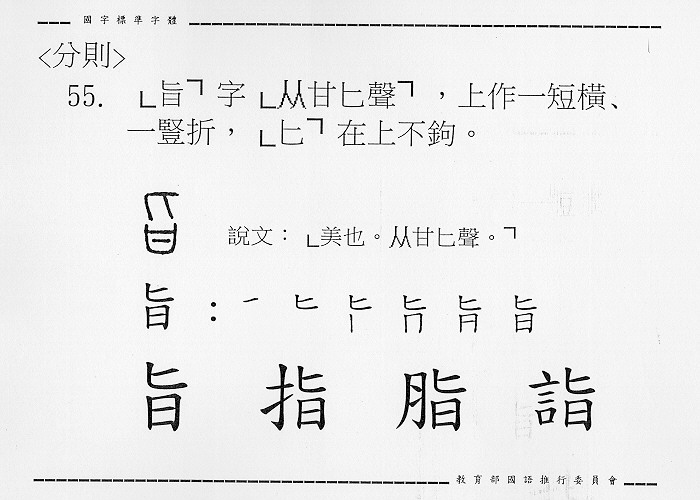 國字標準字體
<分則>
55. 「旨」字「从甘匕聲」，上作一短橫、
一豎折，「匕」在上不鉤。
說文：「美也。从甘匕聲。」
旨：
旨 指 脂 詣
教育部國語推行委員會